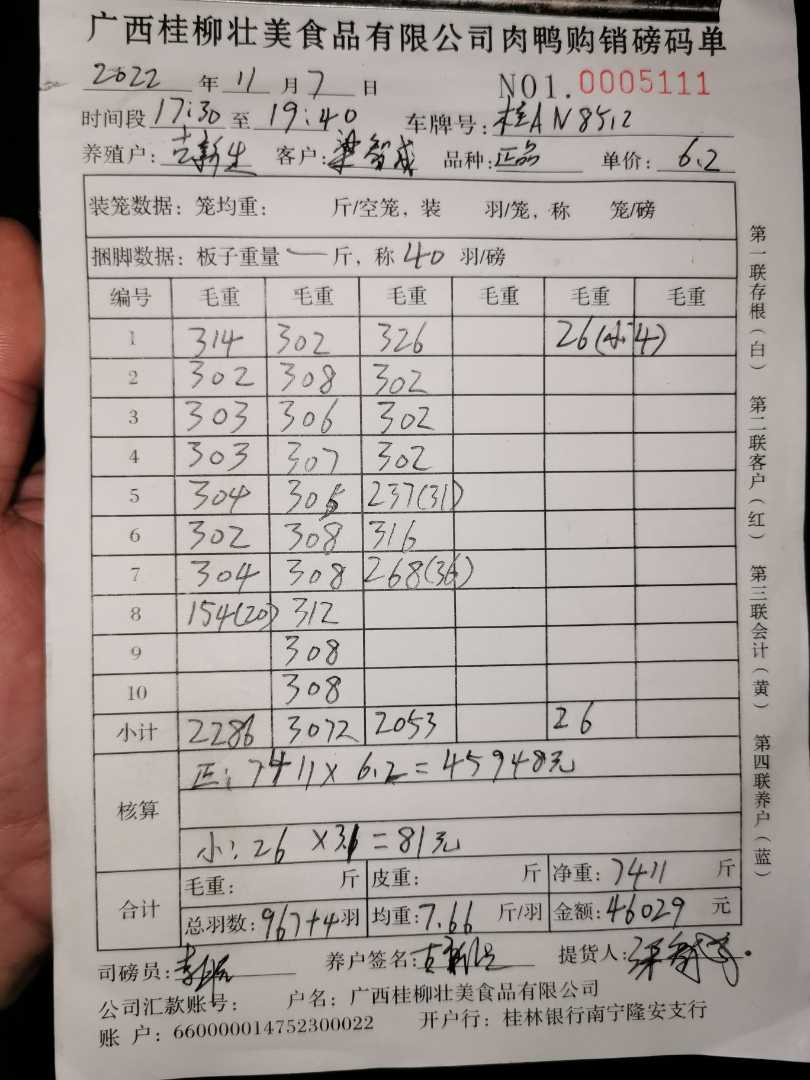 广西桂柳壮美食品有限公司肉鸭购销磅码单
2022 年 11 月 7 日 NO1. 0005111
时间段 17:30 至 19:40 车牌号: 桂A N8512
养殖户: 客户: 梁智成 品种: 正品 单价: 6.2
装笼数据: 笼均重: 斤/空笼, 装 羽/笼, 称 笼/磅
捆脚数据: 板子重量 一 斤, 称 40 羽/磅
编号 毛重 毛重 毛重 毛重 毛重 毛重
1 314 302 326 26(小4)
2 302 308 302
3 303 306 302
4 303 307 302
5 304 305 237(31)
6 302 308 316
7 304 308 268(36)
8 154(20) 312
9 308
10 308
小计 2286 3072 2053 26
核算
正: 7411 × 6.2 = 45948元
小: 26 × 3.1 = 81元
合计
毛重: 斤 皮重: 斤 净重: 7411 斤
总羽数: 967+4 羽 均重: 7.66 斤/羽 金额: 46029 元
司磅员: 养户签名: 提货人: 梁智成
公司汇款账号: 户名: 广西桂柳壮美食品有限公司
账 户: 660000014752300022 开户行: 桂林银行南宁隆安支行
第一联存根(白) 第二联客户(红) 第三联会计(黄) 第四联养户(蓝)